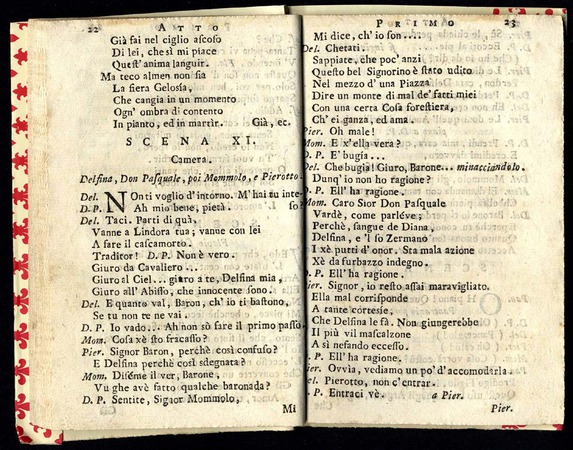 22 ATTO
Già sai nel ciglio ascoso
Di lei, che sì mi piace
Quest' anima languir.
Ma teco almen non sia
La fiera Gelosia,
Che cangia in un momento
Ogn' ombra di contento
In pianto, ed in martir. Già, ec.
SCENA XI.
Camera.
Delfina, Don Pasquale, poi Mommolo, e Pierotto.
Del. NOn ti voglio d'intorno. M'hai tu inte-
D. P. Ah mio bene, pietà. so?
Del. Taci. Parti di quà,
Vanne a Lindora tua; vanne con lei
A fare il cascamorto.
Traditor! D. P. Non è vero.
Giuro da Cavaliero ...
Giuro al Ciel... giuro a te, Delfina mia,
Giuro all' Abisso, che innocente sono.
Del. E quanto val, Baron, ch' io ti bastono,
Se tu non te ne vai.
D. P. Io vado... Ah non sò fare il primo passo.
Mom. Cosa xè sto fracasso?
Pier. Signor Baron, perchè così confuso?
E Delfina perchè così sdegnata?
Mom. Diséme il ver, Barone,
Vu ghe avè fatto qualche baronada?
D. P. Sentite, Signor Mommolo,
Mi
PRIMO 23
Mi dice, ch' io son....
Del. Chetati.
Sappiate, che poc' anzi
Questo bel Signorino è stato udito
Nel mezzo d' una Piazza
Dire un monte di mal de' fatti miei
Con una certa Cosa forestiera,
Ch' ei ganza, ed ama.
Pier. Oh male!
Mom. E x' ella vera?
D. P. E' bugia...
Del. Che bugia! Giuro, Barone... minacciandolo.
Dunq' io non ho ragione?
D. P. Ell' ha ragione.
Mom. Caro Sior Don Pasquale
Vardè, come parléve;
Perchè, sangue de Diana,
Delfina, e 'l so Zermano
I xè putti d' onor. Sta mala azione
Xè da furbazzo indegno.
D. P. Ell' ha ragione.
Pier. Signor, io resto assai maravigliato.
Ella mal corrisponde
A tante cortesie,
Che Delfina le fà. Non giungerebbe
Il più vil mascalzone
A sì nefando eccesso.
D. P. Ell' ha ragione.
Pier. Ovvia, vediamo un po' d'accomodarla.
Del. Pierotto, non c'entrar.
D. P. Entraci vè. a Pier.
Pier.